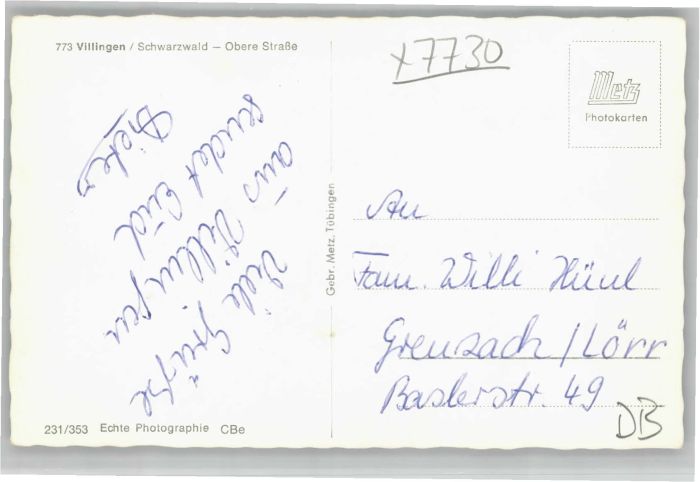 773 Villingen / Schwarzwald – Obere Straße
x7730
Metz
Photokarten
Viele Grüße
aus Villingen
sendet Euch
Dieter
Gebr. Metz, Tübingen
An
Fam. Willi Hünl
Grenzach / Lörr
Baslerstr. 49
DB
231/353 Echte Photographie CBe